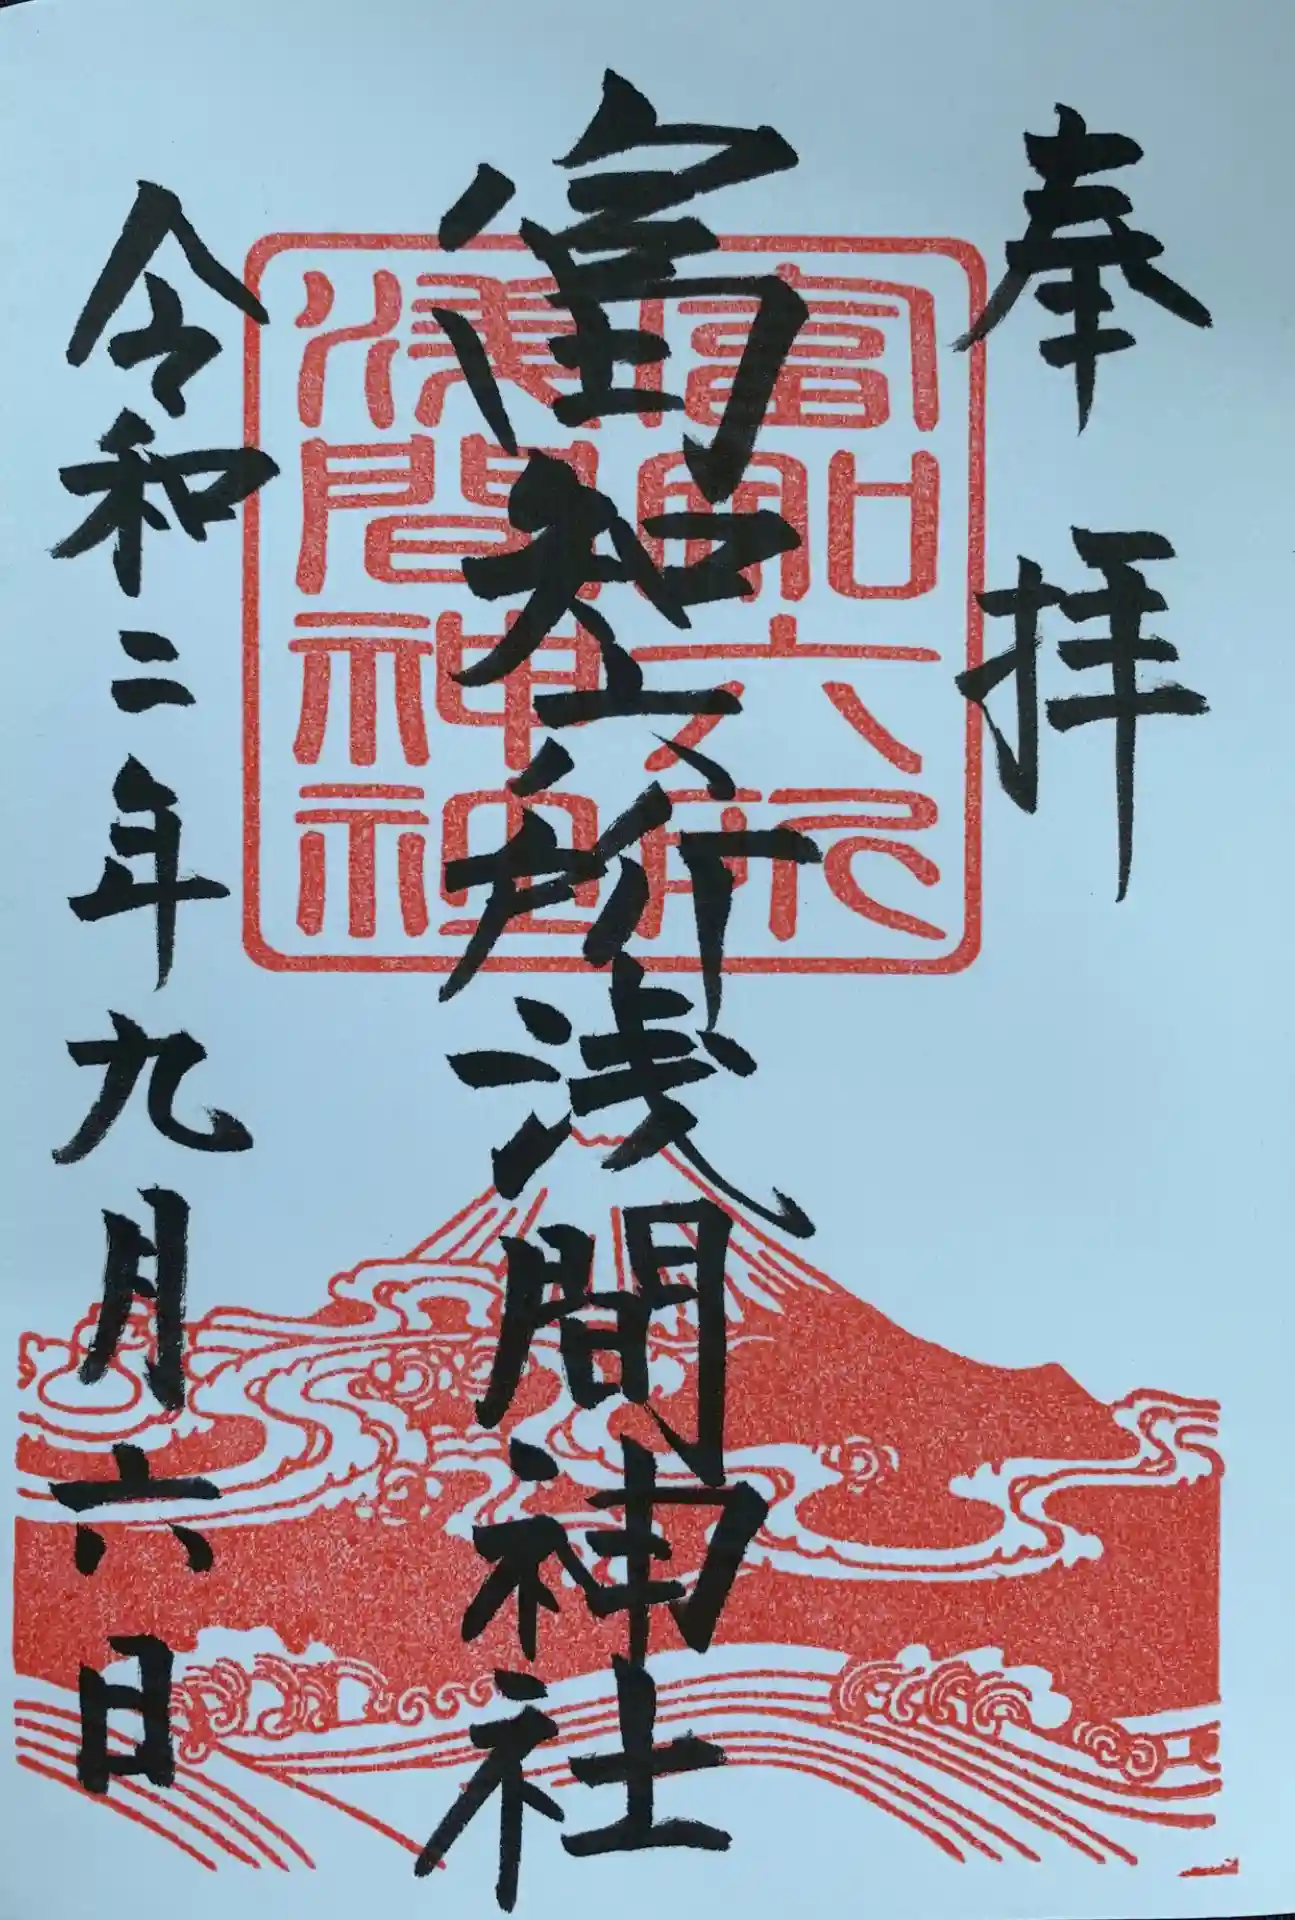 奉拝
富知六所浅間神社
令和二年九月六日
富知六所
淺間神社